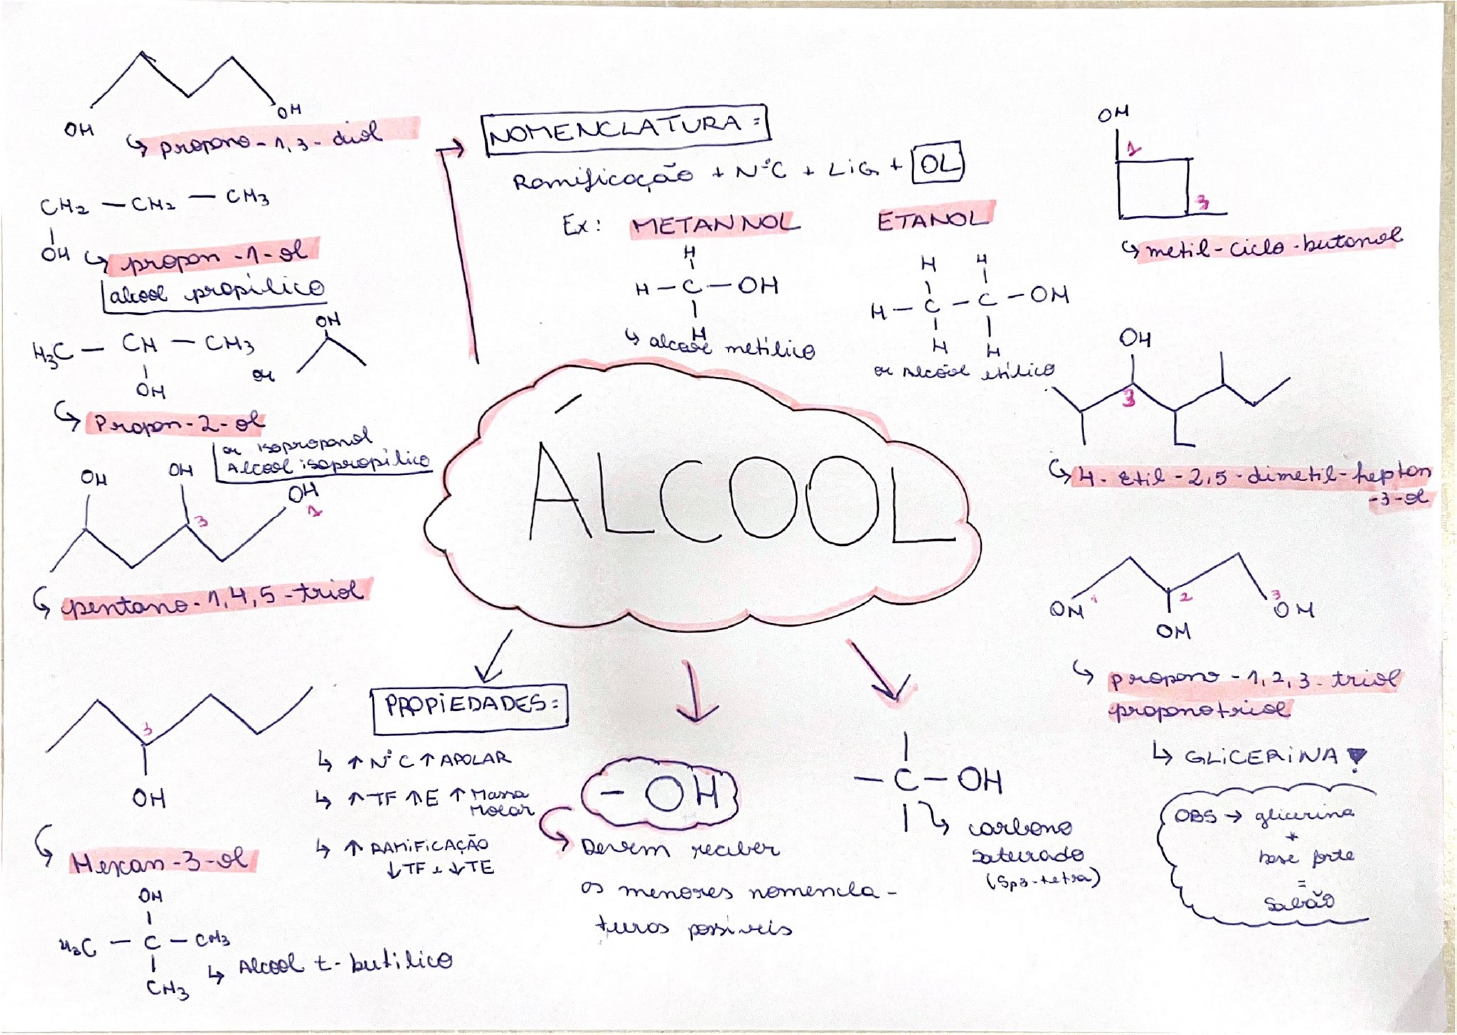 OH
OH
↳ propano-1,3-diol
CH2 — CH2 — CH3
OH
↳ propan-1-ol
alcool propílico
H3C — CH — CH3
OH
ou
OH
↳ Propan-2-ol
ou isopropanol
Alcool isopropílico
OH
OH
3
OH
1
↳ pentano-1,4,5-triol
3
OH
↳ Hexan-3-ol
OH
H3C — C — CH3
CH3
↳ Alcool t-butílico
NOMENCLATURA:
Ramificação + N°C + LiG + OL
Ex: METANNOL
H
H — C — OH
H
↳ alcool metílico
ETANOL
H H
H — C — C — OH
H H
ou Alcool etílico
ÁLCOOL
PROPIEDADES:
↳ ↑ N°C ↑ APOLAR
↳ ↑ TF ↑E ↑ Massa
Molar
↳ ↑ RAMIFICAÇÃO
↓TF e ↓TE
— OH
Devem receber
os menores nomencla-
turas possíveis
— C — OH
↳ carbono
saturado
(Sp3-tetra)
OH
1
3
↳ metil-ciclo-butanol
OH
3
↳ 4-Etil-2,5-dimetil-heptan
-3-ol
OH 1
2
OH
3
OH
↳ propano-1,2,3-triol
propanotriol
↳ GLiCERiNA
OBS → glicerina
+
base forte
=
Sabão